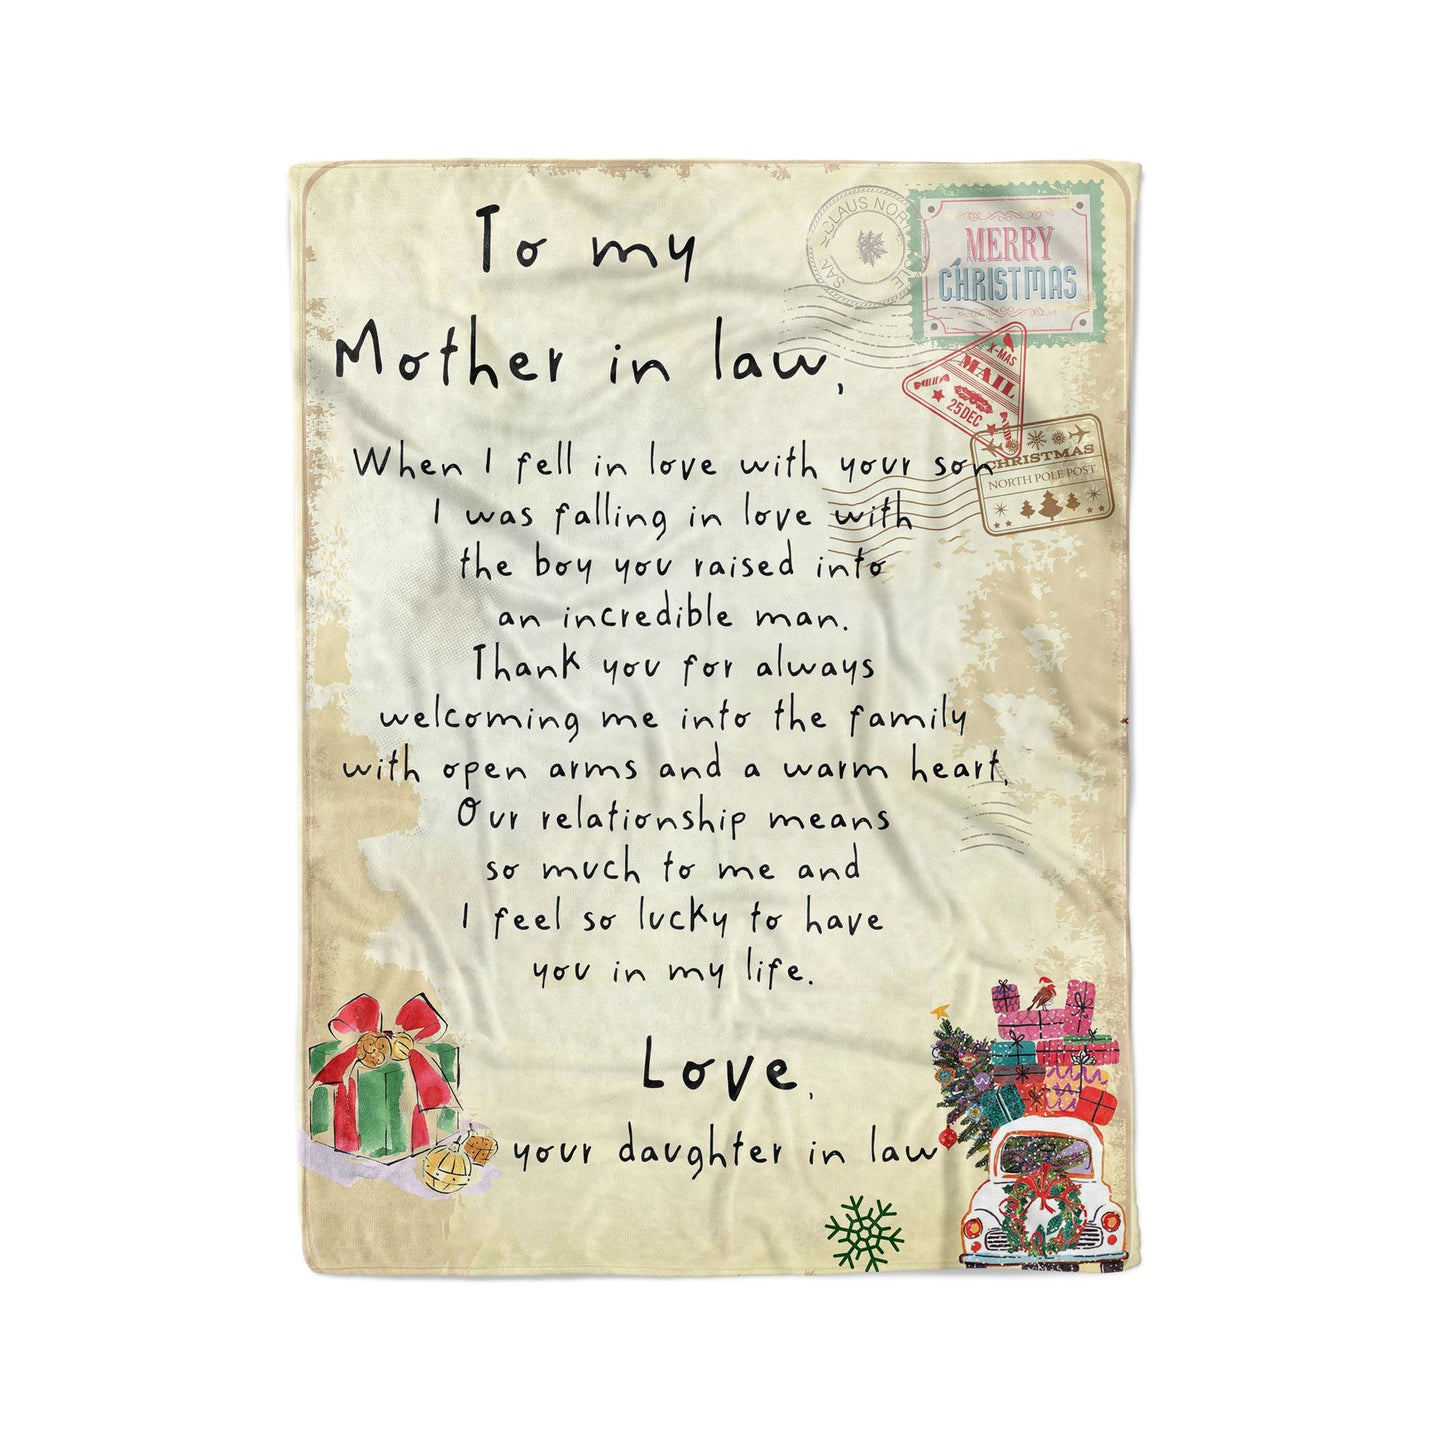 To my
Mother in law,
When I fell in love with your son
I was falling in love with
the boy you raised into
an incredible man.
Thank you for always
welcoming me into the family
with open arms and a warm heart,
Our relationship means
so much to me and
I feel so lucky to have
you in my life.
Love,
your daughter in law
MERRY
CHRISTMAS
X-MAS
MAIL
25 DEC
CHRISTMAS
NORTH POLE POST